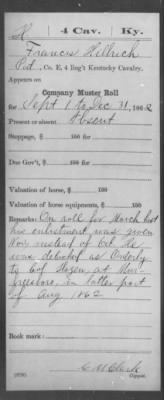 H | 4 Cav. | Ky.
Francis Hellrich
Pvt., Co. E, 4 Reg't Kentucky Cavalry.
Appears on
Company Muster Roll
for Sept 1 to Dec 31, 1862
Present or absent Absent
Stoppage, $ 100 for
Due Gov't, $ 100 for
Valuation of horse, $ 100
Valuation of horse equipments, $ 100
Remarks: On roll for March last
his enlistment was given
Nov, instead of Oct. He
was detached as Orderly
to
at
in latter part
of Aug 1862
Book mark:
C M Clark
Copyist.